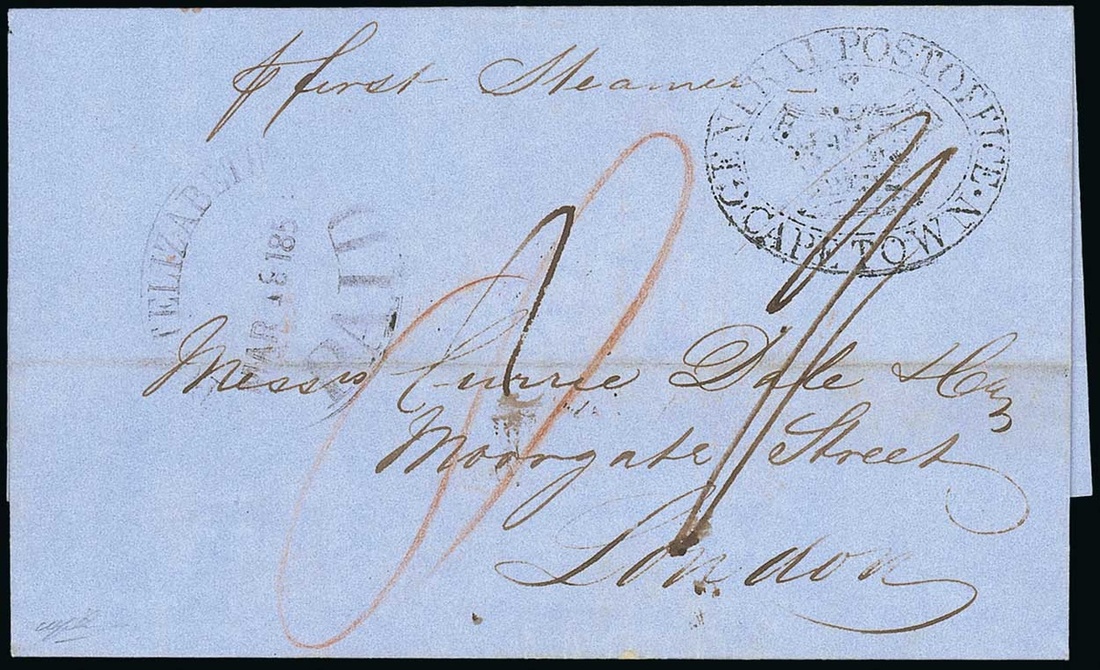 p first Steamer
GENERAL POST OFFICE · CAPE TOWN ·
T ELIZABETH
MAR 18 185
PAID
Messrs Currie Dale & Coy
Moorgate Street
London